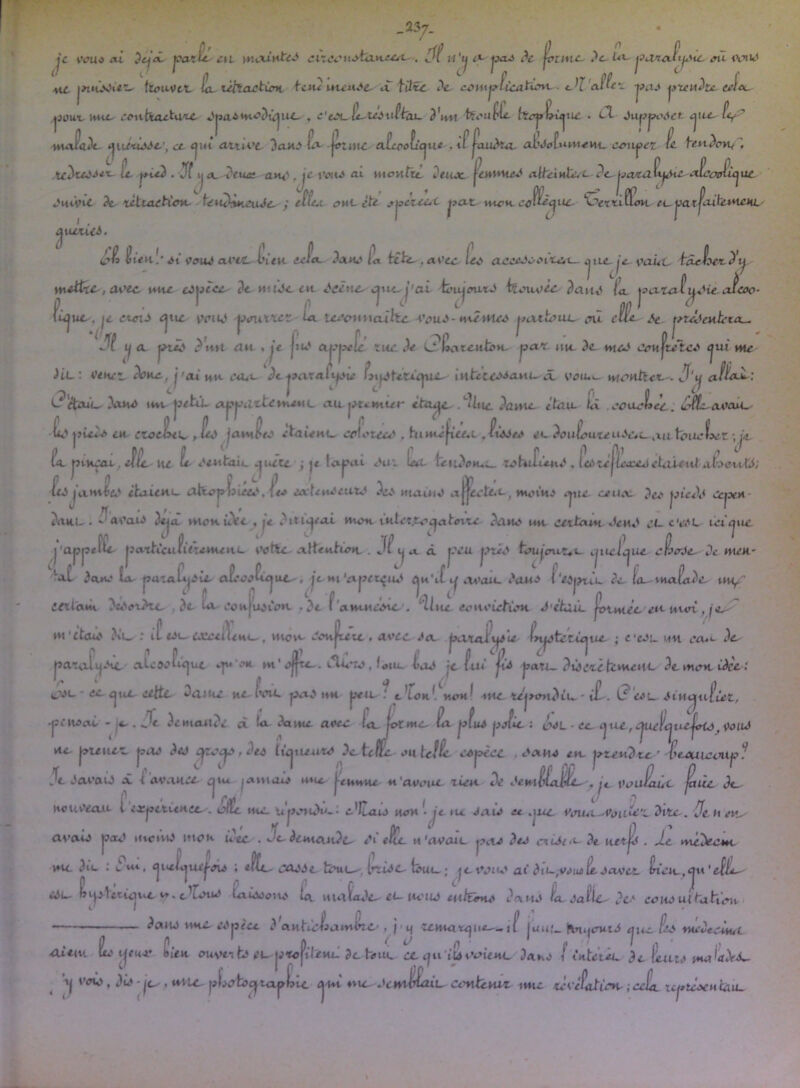 -237-
je vous ai déjà parlé en maintes circonstances. Il n'y a pas de forme de la paralysie où vous
ne puissiez trouver la rétraction tendineuse à titre de complication. N'allez pas prendre cela
pour une contracture spasmodique, c'est le résultat d'un trouble trophique. A supposer que le
malade guérisse, ce qui arrive dans la forme alcoolique, il faudra absolument couper le tendon,
redresser le pied. Il y a deux ans, je vous ai montré deux femmes atteintes de paralysie alcoolique
suivie de rétraction tendineuse; elles ont été opérées par mon collègue Terrillon et parfaitement
guéries.
Eh bien! si vous avez bien cela dans la tête, avec les accessoires que je vais tâcher d'y
mettre, avec une espèce de mise en scène que j'ai toujours trouvée dans la paralysie alcoo-
lique, je crois que vous pourrez la reconnaître vous-mêmes partout où elle se présentera.
Il y a près d'un an, je fus appelé rue de Charenton par un de mes confrères qui me
dit: venez donc, j'ai un cas de paralysie hystérique intéressant à vous montrer. J'y allai;
C'était dans un petit appartement au premier étage. Une dame était là couchée; Elle avait
les pieds en crochet, les jambes étaient colorées, tuméfiées, lisses et douloureuses au toucher; je
la pinçai, elle ne le sentait guère; je tapai sur les tendons rotuliens, les réflexes étaient absents;
les jambes étaient atrophiées, les extenseurs des mains affectés, moins que ceux des pieds cepen-
dant. J'avais déjà mon idée, je dirigeai mon interrogatoire dans un certain sens et c'est ici que
j'appelle particulièrement votre attention. Il y a à peu près toujours quelque chose de men-
tal dans la paralysie alcoolique. je m'aperçus qu'il y avait dans l'esprit de la malade un
certain désordre, de la confusion, de l'amnésie. Une conviction s'était formée en moi, je
m'étais dit: il est excellent, mon confrère, avec sa paralysie hystérique; c'est un cas de
paralysie alcoolique qu'on m'offre. Alors, tout bas je lui fis part discrètement de mon idée:
Est-ce que cette dame ne boit pas un peu? Non! non! me répondit-il. C'est singulier,
pensai-je. Je demandai à la dame avec la forme la plus polie: Est-ce que, quelquefois, vous
ne prenez pas des grogs, des liqueurs de telle ou telle espèce, sans en prendre beaucoup?
Je savais à l'avance que jamais une femme n'avoue rien de semblable, je voulais faire de
nouveau l'expérience. Elle me répondit: Mais non! je ne sais ce que vous voulez dire. Je n'en
avais pas moins mon idée. Je demandai si elle n'avait pas des crises de nerfs. Le médecin
me dit: Oui, quelquefois; elle casse tout, brise tout; je vous ai dit, vous le savez bien, qu'elle
est hystérique". Nous laissons la malade et nous entrons dans la salle de consultation
dans une espèce d'antichambre, j'y remarquai — il faut toujours que les médecins
aient les yeux bien ouverts et profitent de tout ce qu'ils voient dans l'intérêt de leurs malades
'y vois, dis-je, une photographie qui me semblait contenir une révélation; cela représentait